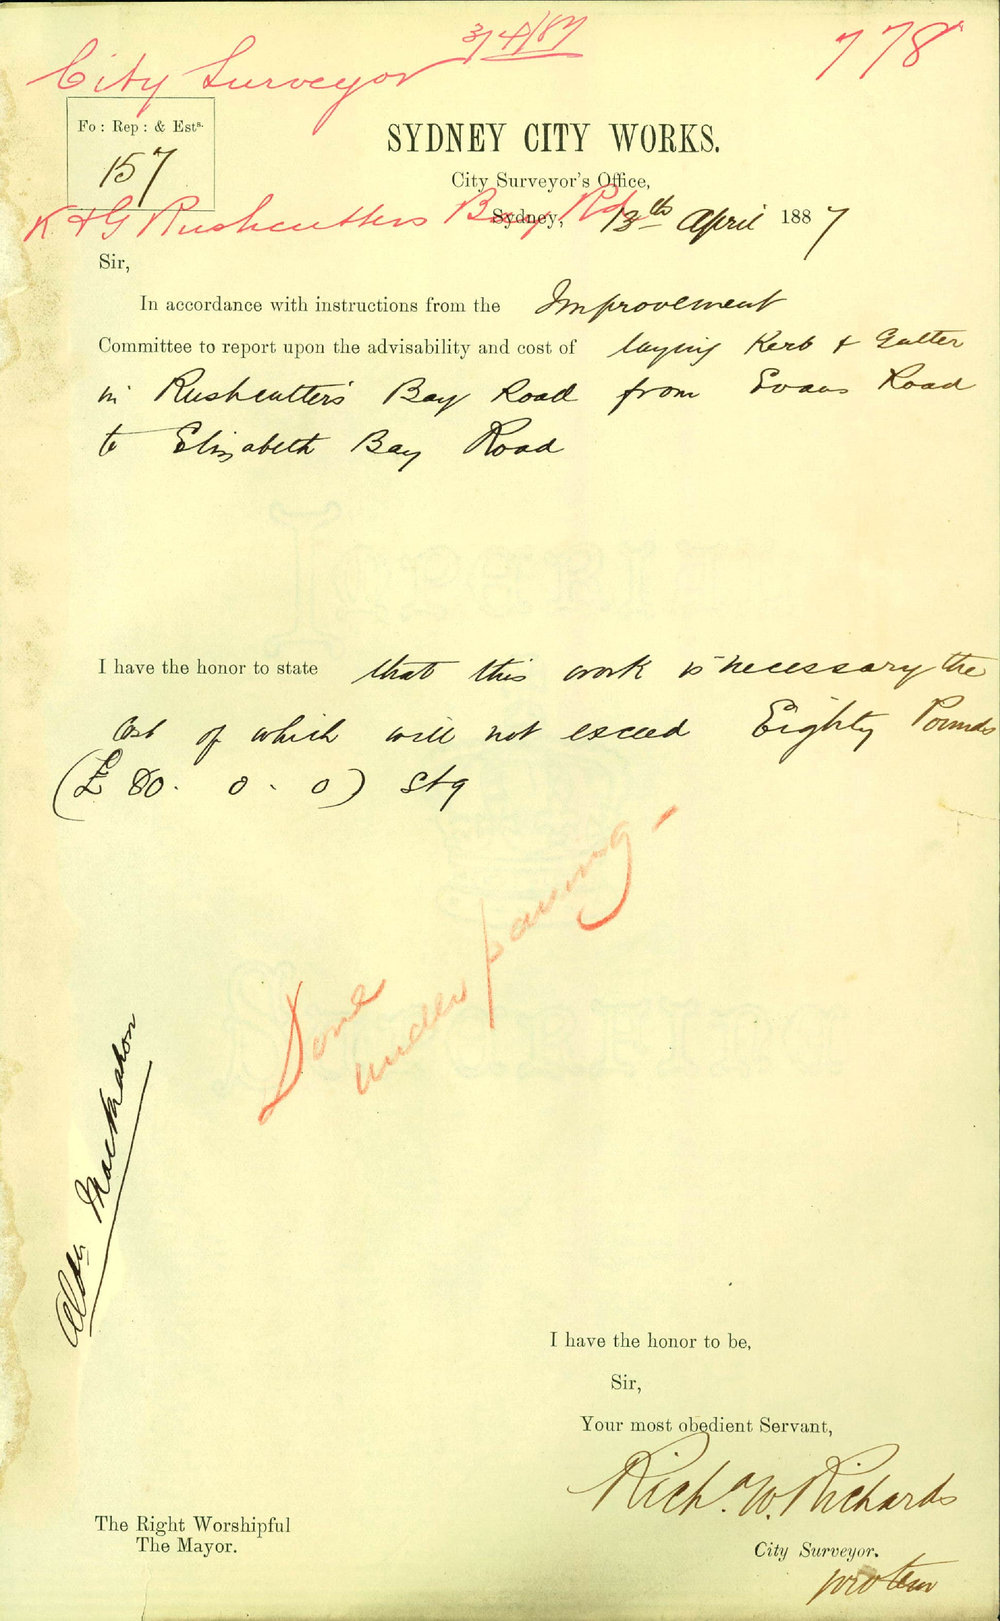 City Surveyor 3/4/87
778
Fo: Rep: & Ests.
157
SYDNEY CITY WORKS.
City Surveyor's Office,
K & G Rushcutters Bay Rd
Sydney, 13th April 1887
Sir,
In accordance with instructions from the Improvement
Committee to report upon the advisability and cost of laying Kerb & Gutter
in Rushcutter's Bay Road from Evans Road
to Elizabeth Bay Road
I have the honor to state that this work is necessary the
Cost of which will not exceed Eighty Pounds
(£80. 0. 0) Stg
Done
under paving-
Aldn. MacMahon
I have the honor to be,
Sir,
Your most obedient Servant,
Richd. W. Richards
City Surveyor.
pro tem
The Right Worshipful
The Mayor.